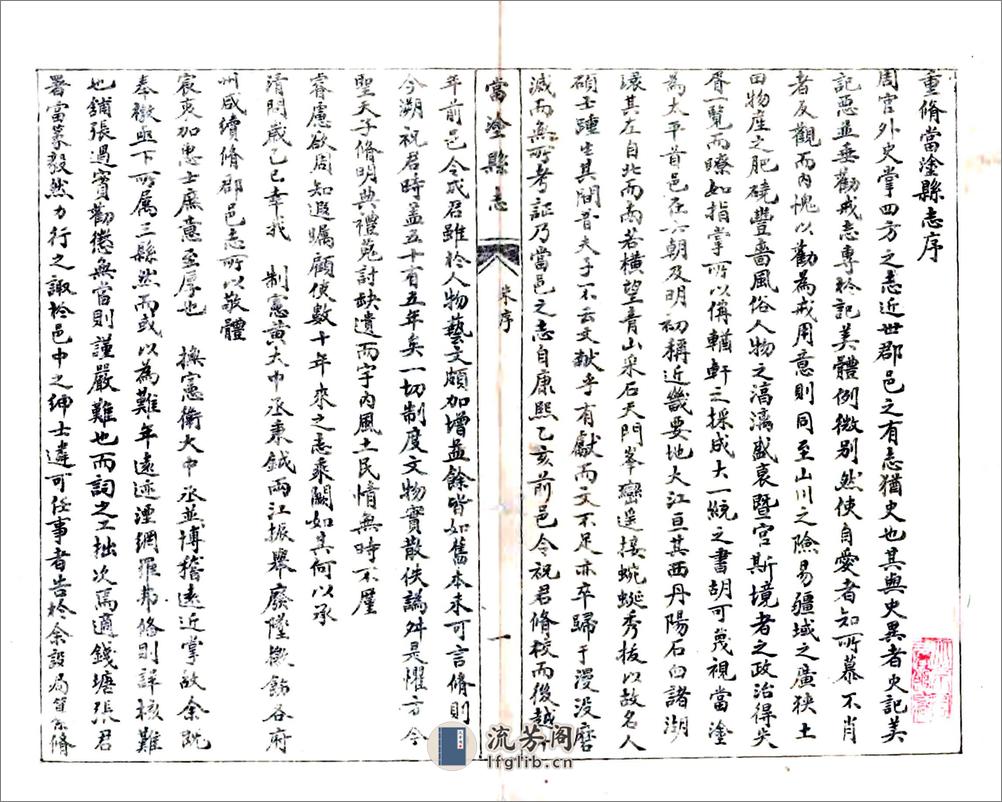 重脩當塗縣志序
周官外史掌四方之志近世郡邑之有志猶史也其與史異者史記美
記惡並垂勸戒志專於記美體例微別然使自愛者知所慕不肖
者反觀而內愧以勸為戒用意則同至山川之險易疆域之廣狹土
田物產之肥磽豐嗇風俗人物之漓漓盛衰暨宦斯境者之政治得失
胥一覽而瞭如指掌所以備輶軒之採成大一統之書胡可蔑視當塗
為太平首邑在六朝及明初稱近畿要地大江亘其西丹陽石臼諸湖
滙其左自北而南若橫望青山采石天門峯巒遥接蜿蜒秀拔以故名人
碩士踵生其間昔夫子不云文獻乎有獻而文不足亦卒歸于漫没磨
滅而無所考証乃當邑之志自康熙乙亥前邑令祝君脩校而後越
當塗縣志
朱序
一
年前邑令成君雖於人物藝文頗加增益餘皆如舊本未可言脩則
今溯祝君時蓋五十有五年矣一切制度文物實散佚譌舛是懼方今
聖天子脩明典禮蒐討缺遺而宇內風土民情無時不厪
睿慮欲周知遐矚顧使數十年來之志乘闕如其何以承
清問歲己巳幸我 制憲黃大中丞秉鉞兩江振舉廢墜檄飭各府
州咸續脩郡邑志所以敬體
宸衷加惠士庶意至厚也 撫憲衛大中丞並博稽遠近掌故余既
奉檄與下所属三縣然而或以為難年遠迹湮網羅弗備則詳核難
也舖張過實勸懲無當則謹嚴難也而詞之工拙次焉適錢塘張君
署當篆毅然力行之諏於邑中之紳士遴可任事者告於余設局 脩
流芳阁
lfglib.cn